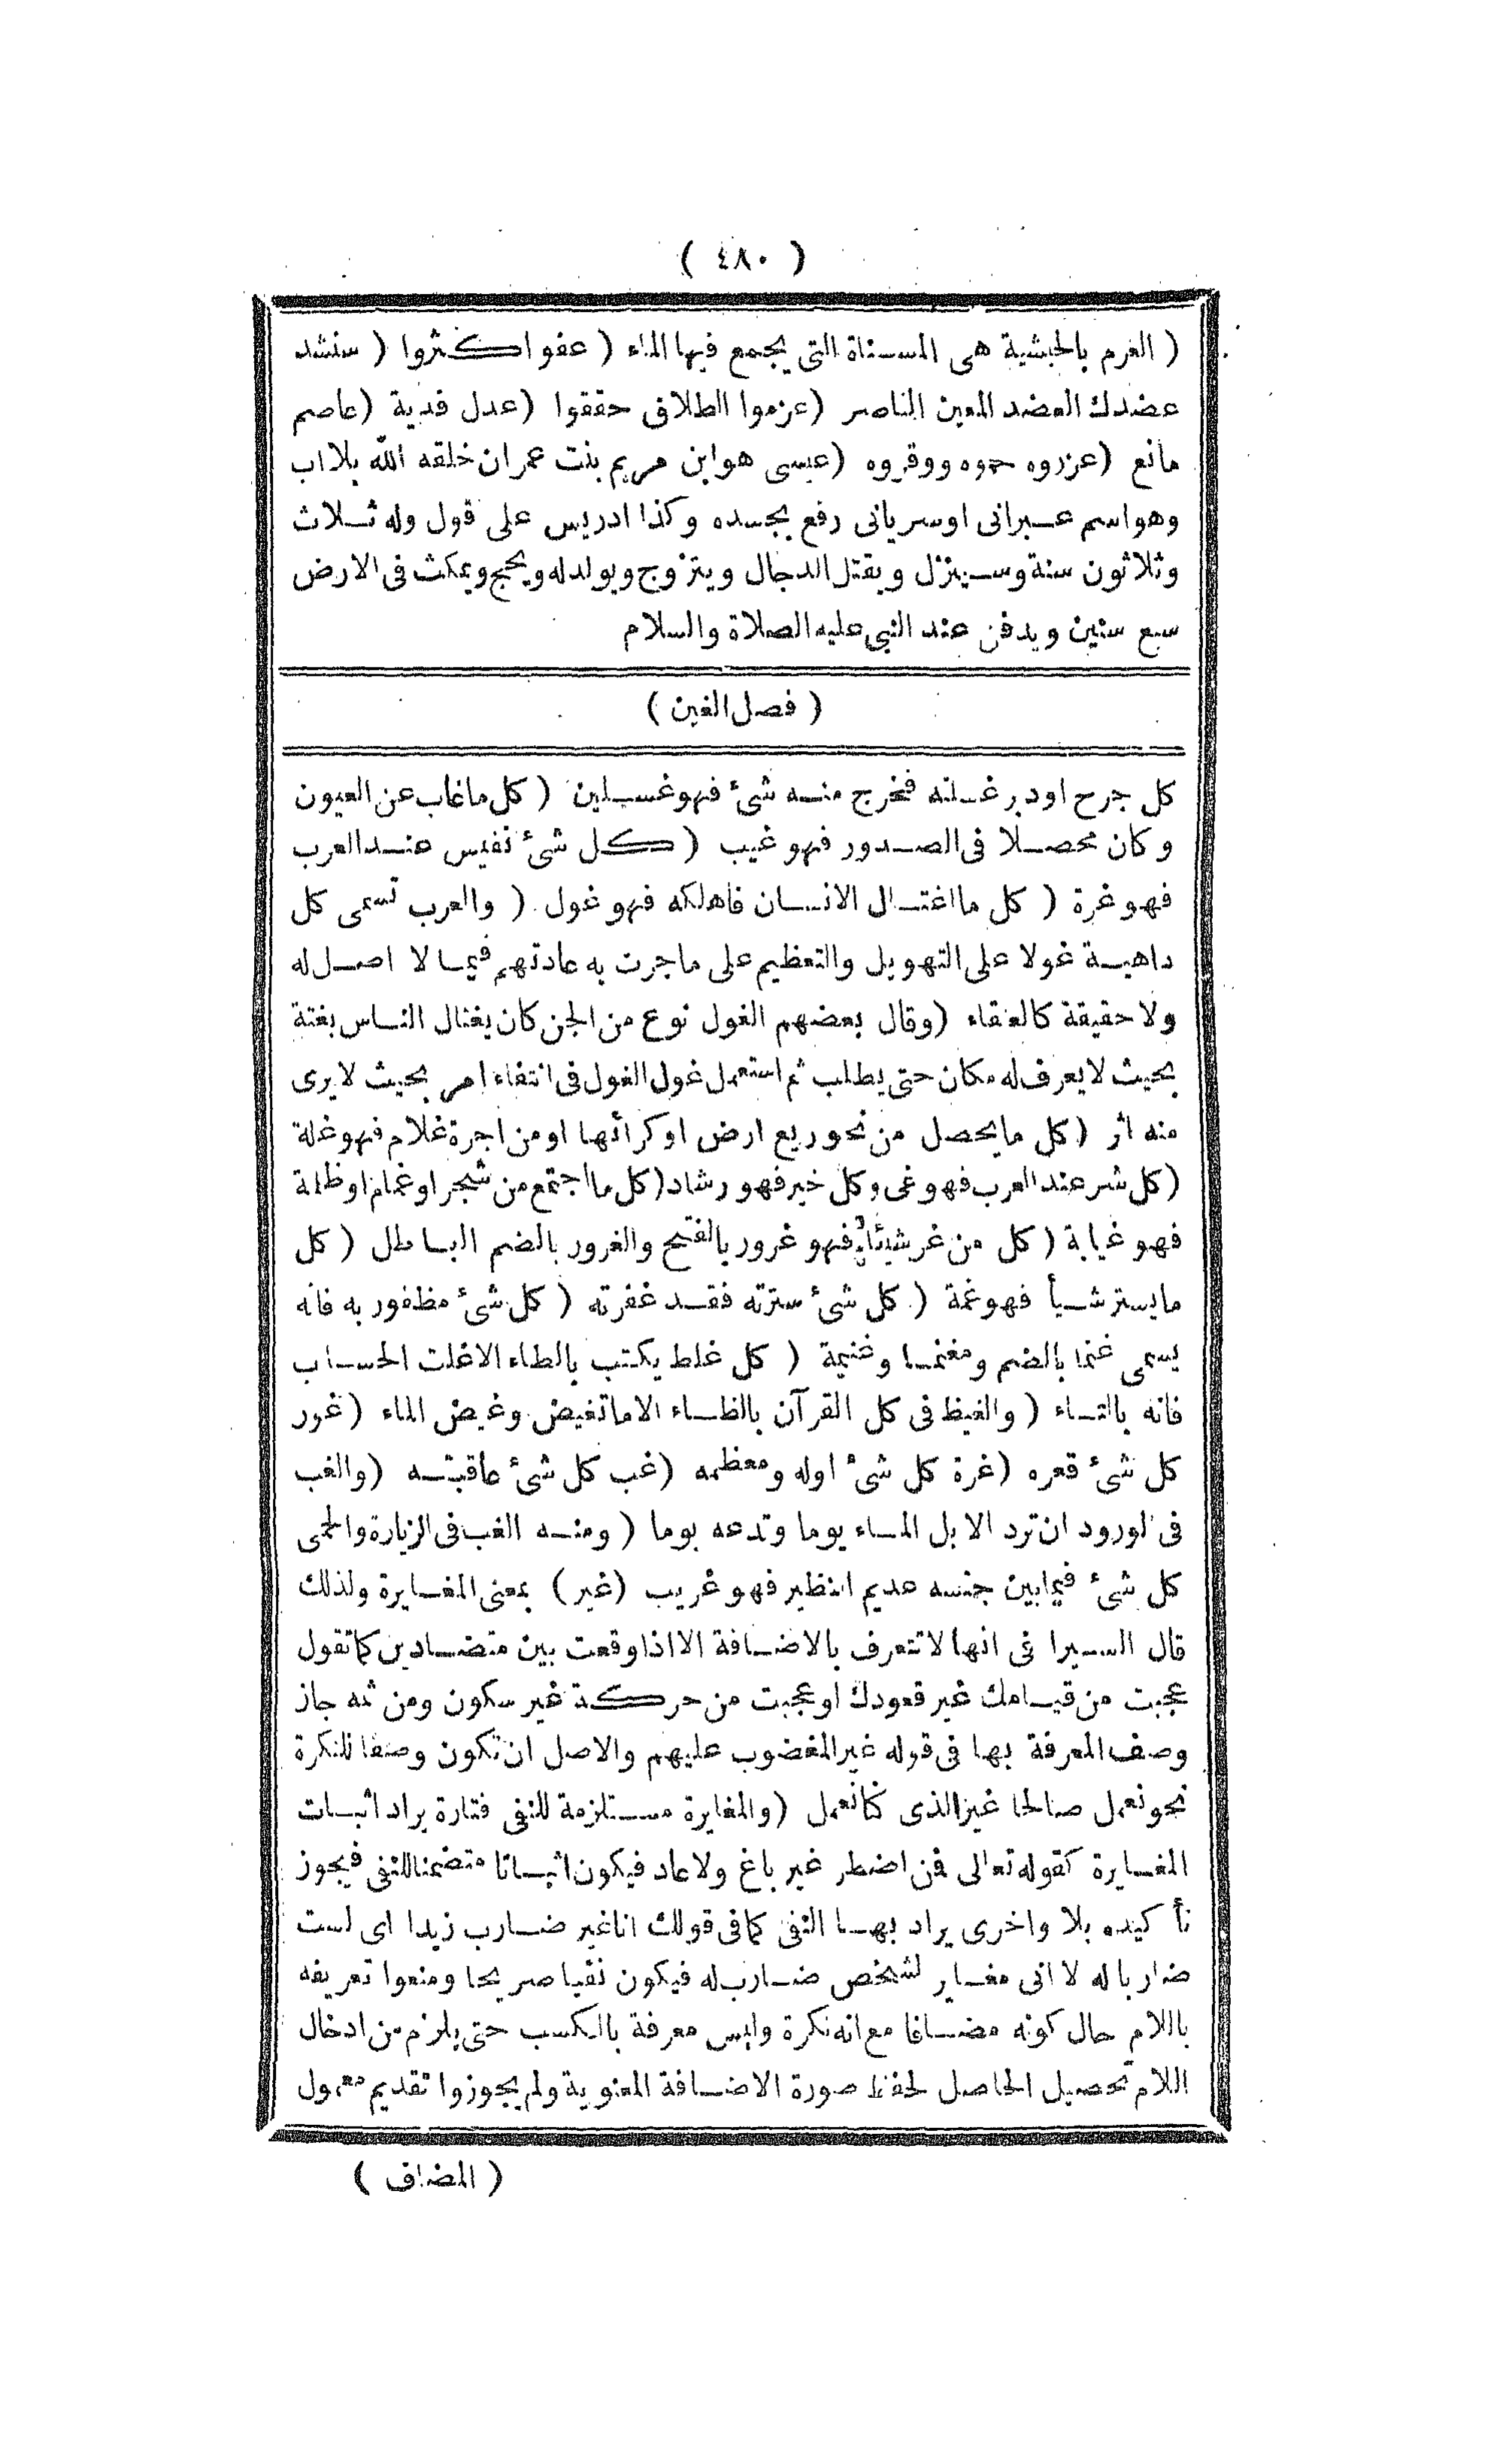 ( ٤٨٠ )
( العرم بالحبشية هى المسناة التى يجمع فيها الماء ( عفوا كثروا ( سنشد
عضدك العضد المعين الناصر (عزموا الطلاق حققوا (عدل فدية (عاصم
مانع (عزروه حموه ووقروه (عيسى هو ابن مريم بنت عمران خلقه الله بلا اب
وهو اسم عبرانى او سريانى رفع بجسده وكذا ادريس على قول وله ثلاث
وثلاثون سنة وسينزل ويقتل الدجال ويتزوج ويولد له ويحج ويمكث فى الارض
سبع سنين ويدفن عند النبى عليه الصلاة والسلام
( فصل الغين )
كل جرح او دبر غسلته فخرج منه شئ فهو غسلين ( كل ما غاب عن العيون
وكان محصلا فى الصدور فهو غيب ( كل شئ نفيس عند العرب
فهو غرة ( كل ما اغتال الانسان فاهلكه فهو غول ( والعرب تسمى كل
داهية غولا على التهويل والتعظيم على ما جرت به عادتهم فيما لا اصل له
ولا حقيقة كالعنقاء (وقال بعضهم الغول نوع من الجن كان يغتال الناس بغتة
بحيث لا يعرف له مكان حتى يطلب ثم استعمل غول الغول فى انتفاء امر بحيث لا يرى
منه اثر ( كل ما يحصل من نحو ريع ارض او كرائها او من اجرة غلام فهو غلة
(كل شر عند العرب فهو غى وكل خير فهو رشاد (كل ما اجتمع من شجر او غمام او ظلمة
فهو غيابة ( كل من غر شيئا فهو غرور بالفتح والغرور بالضم الباطل ( كل
ما يستر شيأ فهو غمة ( كل شئ سترته فقد غفرته ( كل شئ مظفور به فانه
يسمى غنما بالضم ومغنما وغنيمة ( كل غلط يكتب بالطاء الا غلت الحساب
فانه بالتاء ( والغيظ فى كل القرآن بالظاء الا ما تغيض وغيض الماء (غور
كل شئ قعره (غرة كل شئ اوله ومعظمه (غب كل شئ عاقبته (والغب
فى الورود ان ترد الابل الماء يوما وتدعه يوما ( ومنه الغب فى الزيارة والحمى
كل شئ فيما بين جنسه عديم النظير فهو غريب (غير ) بمعنى المغايرة ولذلك
قال السيرافى انها لا تتعرف بالاضافة الا اذا وقعت بين متضادين كما تقول
عجبت من قيامك غير قعودك او عجبت من حركة غير سكون ومن ثمه جاز
وصف المعرفة بها فى قوله غير المغضوب عليهم والاصل ان تكون وصفا للنكرة
نحو نعمل صالحا غير الذى كنا نعمل (والمغايرة مستلزمة للنفى فتارة يراد اثبات
المغايرة كقوله تعالى فمن اضطر غير باغ ولا عاد فيكون اثباتا متضمنا للنفى فيجوز
تأكيده بلا واخرى يراد بها النفى كما فى قولك انا غير ضارب زيدا اى لست
ضاربا له لا انى مغاير لشخص ضارب له فيكون نفيا صريحا ومنعوا تعريفه
باللام حال كونه مضافا مع انه نكرة وليس معرفة بالكسب حتى يلزم من ادخال
اللام تحصيل الحاصل لحفظ صورة الاضافة المعنوية ولم يجوزوا تقديم معمول
( المضاف )